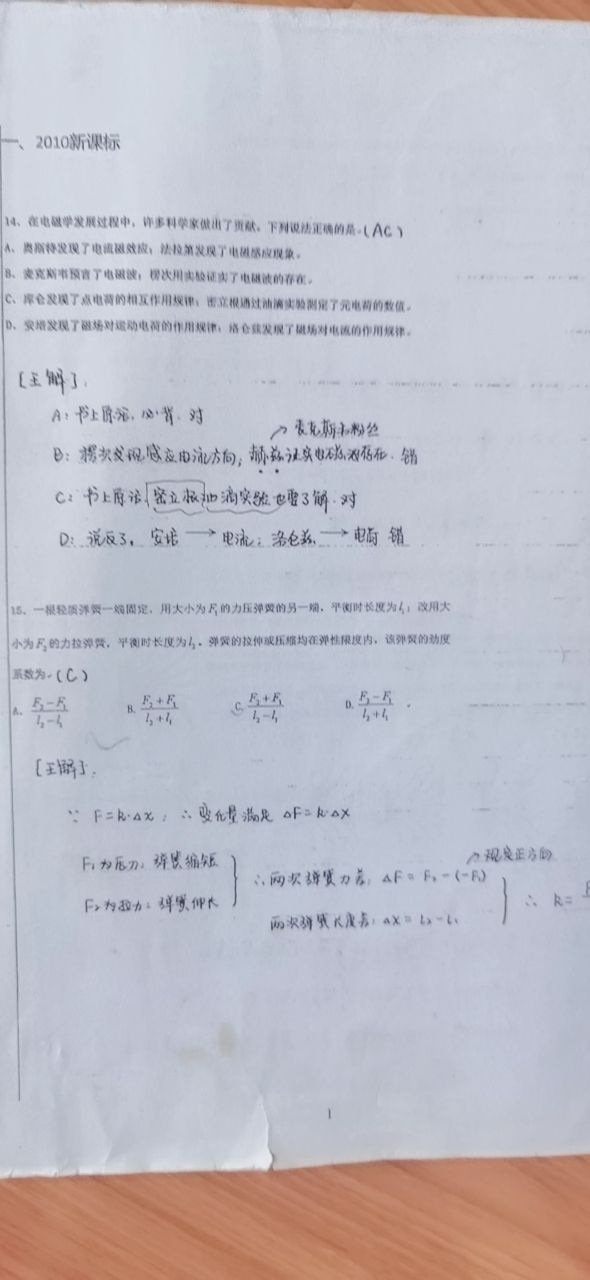 一、2010新课标
14、在电磁学发展过程中，许多科学家做出了贡献。下列说法正确的是。(AC)
A、奥斯特发现了电流磁效应；法拉第发现了电磁感应现象。
B、麦克斯韦预言了电磁波；楞次用实验证实了电磁波的存在。
C、库仑发现了点电荷的相互作用规律；密立根通过油滴实验测定了元电荷的数值。
D、安培发现了磁场对运动电荷的作用规律；洛仑兹发现了磁场对电流的作用规律。
[王解]：
A：书上原话，必背．对
→ 麦克斯韦粉丝
B：楞次发现感应电流方向；赫兹证实电磁波存在．错
C：书上原话，密立根油滴实验也要了解．对
D：说反了，安培 → 电流；洛仑兹 → 电荷 错
15、一根轻质弹簧一端固定，用大小为F₁的力压弹簧的另一端，平衡时长度为l₁；改用大
小为F₂的力拉弹簧，平衡时长度为l₂。弹簧的拉伸或压缩均在弹性限度内，该弹簧的劲度
系数为。(C)
A. (F₂−F₁)/(l₂−l₁) B. (F₂+F₁)/(l₂+l₁) C. (F₂+F₁)/(l₂−l₁) D. (F₂−F₁)/(l₂+l₁)
[王解]：
∵ F=k·Δx；∴ 变化量满足 ΔF=k·ΔX
→ 规定正方向
F₁为压力：弹簧缩短
F₂为拉力：弹簧伸长
∴两次弹簧力差：ΔF = F₂ −(−F₁)
两次弹簧长度差：ΔX = L₂−L₁
∴ k=
1